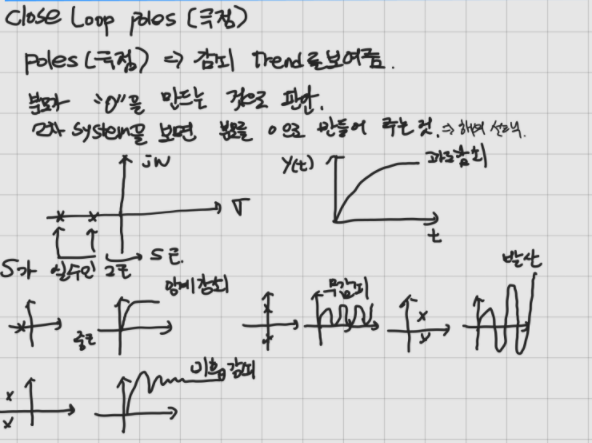 Close Loop poles (극점)
poles (극점) ⇒ 감쇠 Trend로 보여줌.
분모가 "0"을 만드는 것으로 판단.
2차 System을 보면 분모를 0으로 만들어 주는 것. ⇒ 해의
jw
σ
S가 실수인 2근
S로.
Y(t)
과도감쇠
t
임계감쇠
중근
무감쇠
발산
감쇠